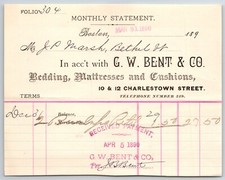 FOLIO 304
MONTHLY STATEMENT.
Boston, MAR 31 1890 189
M J. P. Marsh, Bethel Vt
In acc't with G. W. BENT & CO.
Bedding, Mattresses and Cushions,
10 & 12 CHARLESTOWN STREET.
TERMS
TELEPHONE NUMBER
27 50
RECEIVED PAYMENT,
APR 8 1890
G. W. BENT & CO.